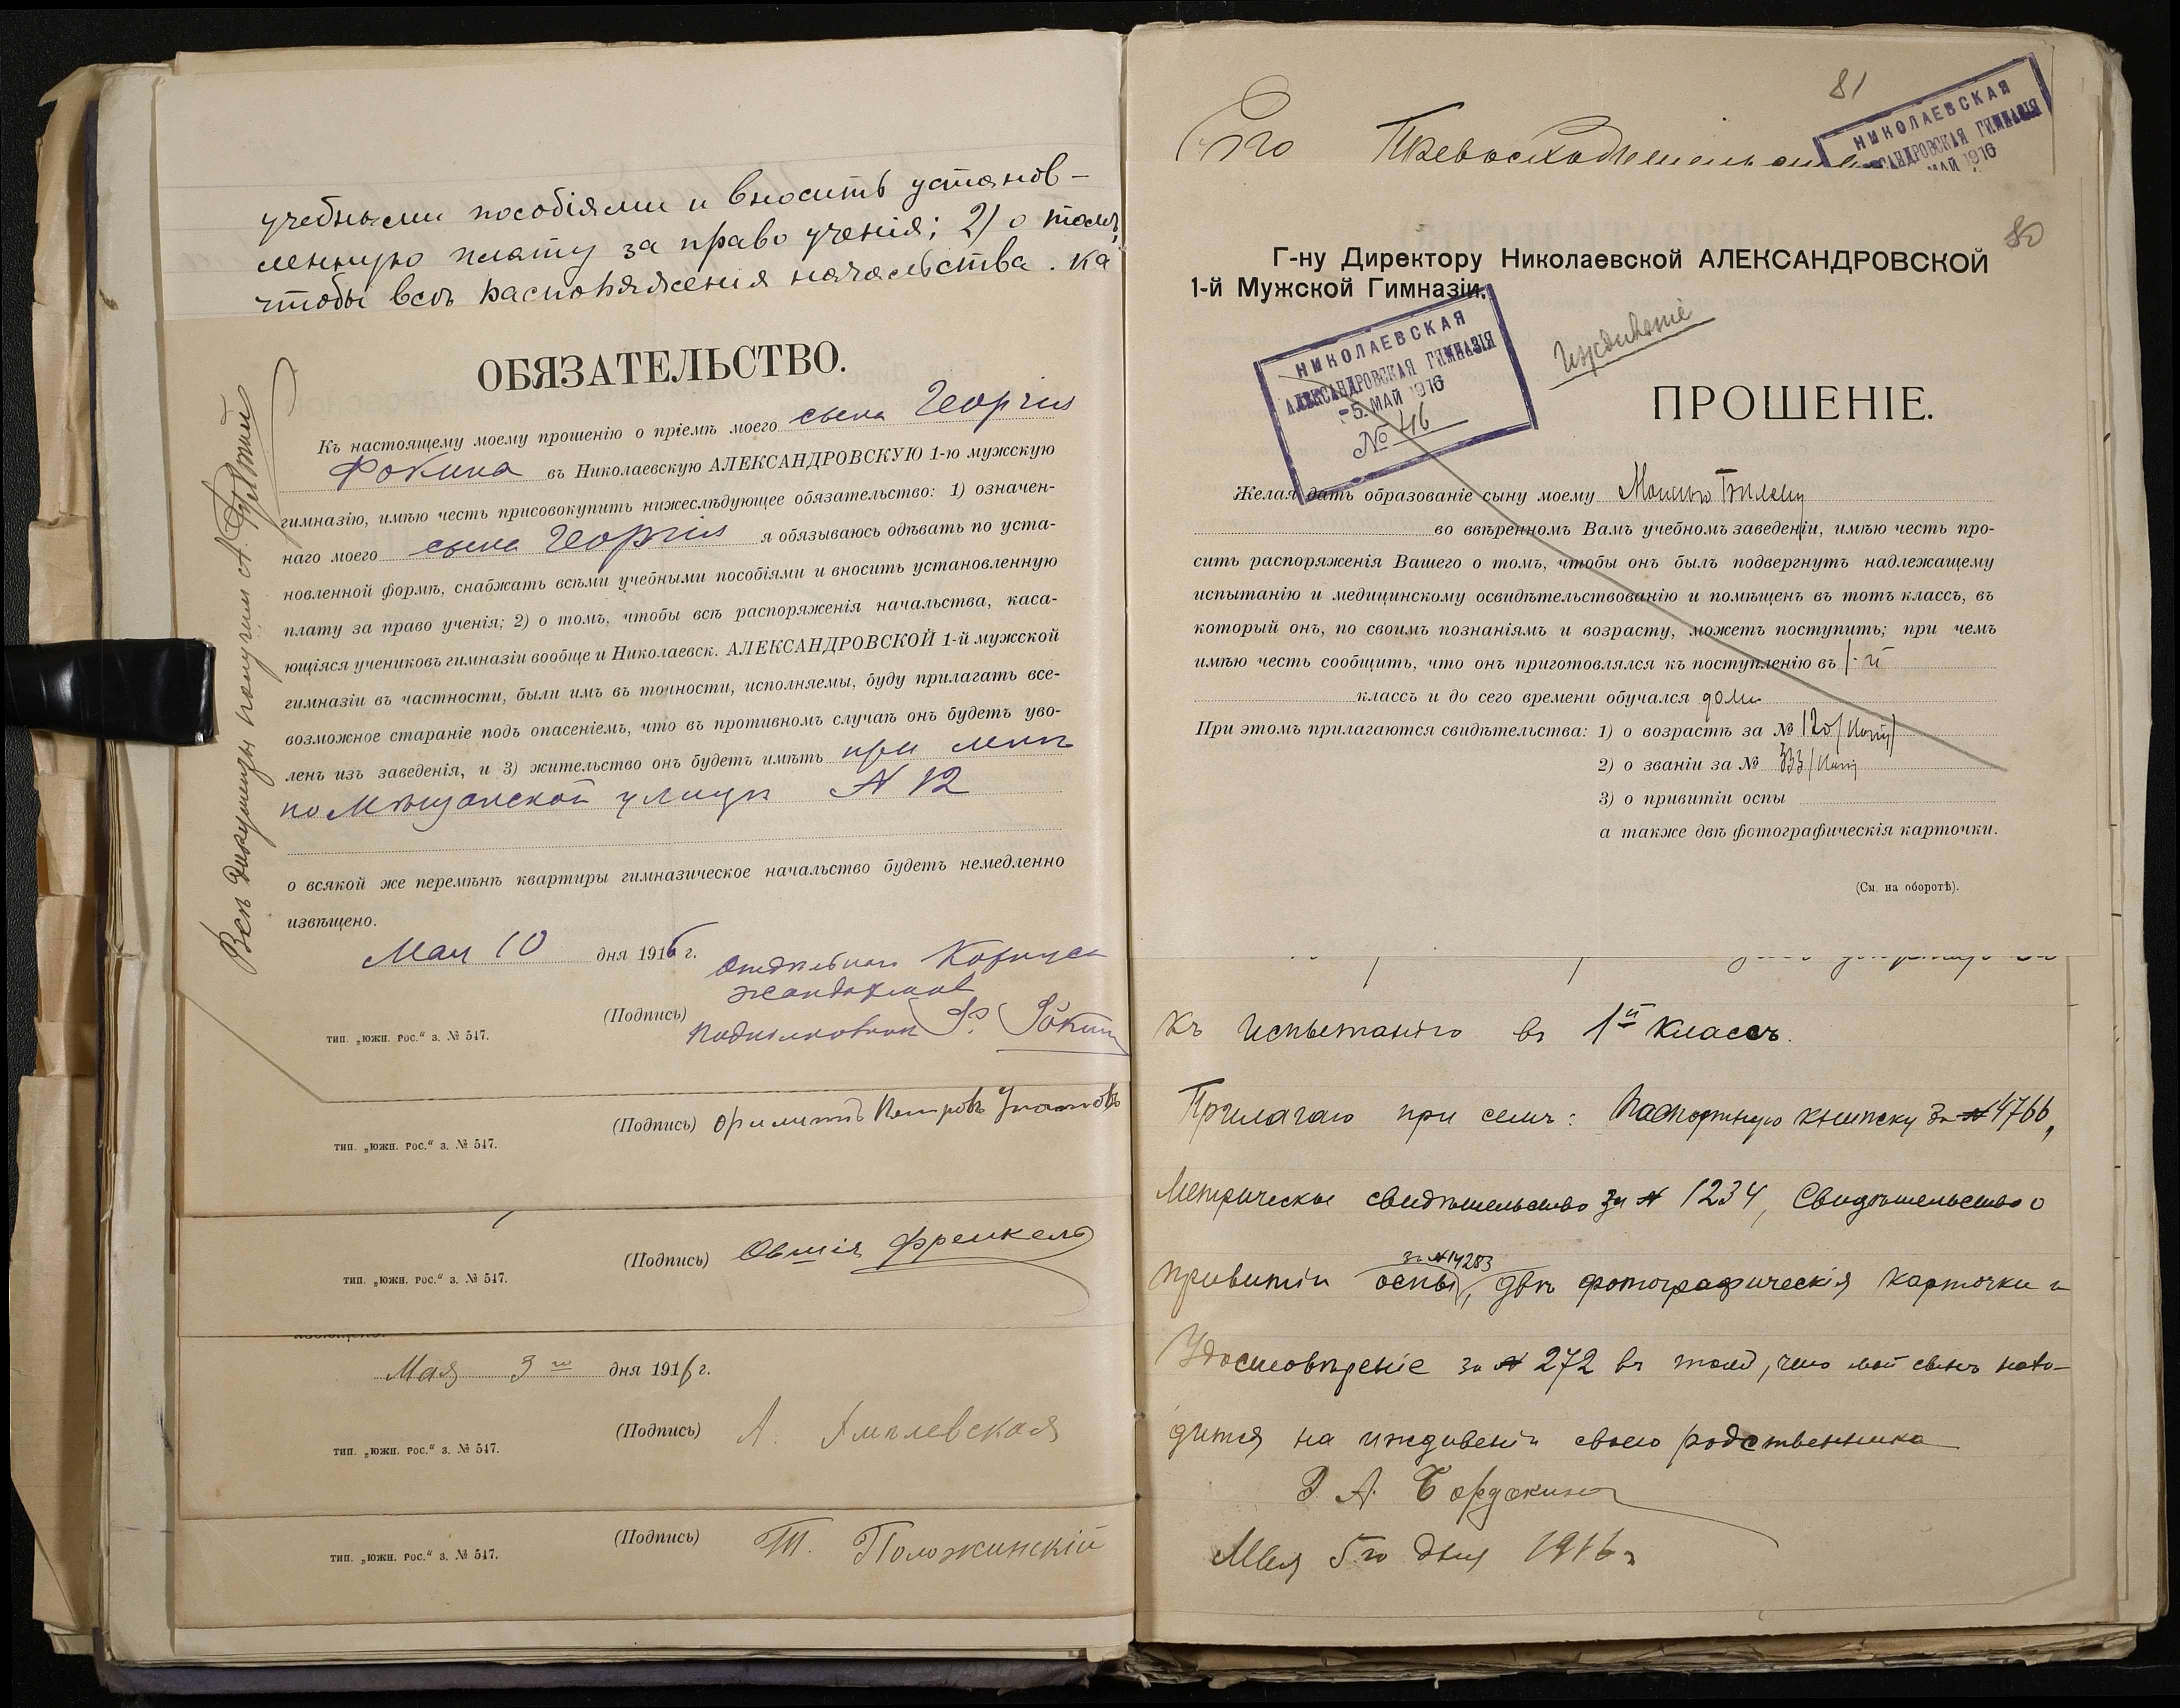 учебными пособіями и вносить установ-
ленную плату за право ученія; 2) о томъ,
чтобы всѣ распоряженія начальства. ка
ОБЯЗАТЕЛЬСТВО.
Къ настоящему моему прошенію о пріемѣ моего сына Георгія
Фокина въ Николаевскую АЛЕКСАНДРОВСКУЮ 1-ю мужскую
гимназію, имѣю честь присовокупить нижеслѣдующее обязательство: 1) означен-
наго моего сына Георгія я обязываюсь одѣвать по уста-
новленной формѣ, снабжать всѣми учебными пособіями и вносить установленную
плату за право ученія; 2) о томъ, чтобы всѣ распоряженія начальства, каса-
ющіяся учениковъ гимназіи вообще и Николаевск. АЛЕКСАНДРОВСКОЙ 1-й мужской
гимназіи въ частности, были имъ въ точности, исполняемы, буду прилагать все-
возможное стараніе подъ опасеніемъ, что въ противномъ случаѣ онъ будетъ уво-
ленъ изъ заведенія, и 3) жительство онъ будетъ имѣть при мнѣ
по Мѣщанской улицѣ № 12
о всякой же перемѣнѣ квартиры гимназическое начальство будетъ немедленно
извѣщено.
Мая 10 дня 1916 г.
Отдѣльнаго Корпуса
жандармовъ
(Подпись) Подполковник Фокин
тип. „южн. рос.“ з. № 547.
Всѣ документы получилъ А.
(Подпись) Филиппъ Петровъ
тип. „южн. рос.“ з. № 547.
(Подпись) Овшія Френкель
тип. „южн. рос.“ з. № 547.
Мая 3 го дня 1916 г.
(Подпись) А.
тип. „южн. рос.“ з. № 547.
(Подпись) Т. Положинскій
тип. „южн. рос.“ з. № 547.
81
Его Превосходительству
НИКОЛАЕВСКАЯ
САНДРОВСКАЯ ГИМНАЗІЯ
МАЙ 1916
80
Г-ну Директору Николаевской АЛЕКСАНДРОВСКОЙ
1-й Мужской Гимназіи.
НИКОЛАЕВСКАЯ
АЛЕКСАНДРОВСКАЯ ГИМНАЗІЯ
-5. МАЙ 1916
№ 416
Иждивеніе
ПРОШЕНІЕ.
Желая дать образованіе сыну моему
во ввѣренномъ Вамъ учебномъ заведеніи, имѣю честь про-
сить распоряженія Вашего о томъ, чтобы онъ былъ подвергнутъ надлежащему
испытанію и медицинскому освидѣтельствованію и помѣщенъ въ тотъ классъ, въ
который онъ, по своимъ познаніямъ и возрасту, можетъ поступить; при чемъ
имѣю честь сообщить, что онъ приготовлялся къ поступленію въ 1-й
классъ и до сего времени обучался дома
При этомъ прилагаются свидѣтельства: 1) о возрастѣ за № 120
2) о званіи за № 333
3) о привитіи оспы
а также двѣ фотографическія карточки.
(См. на оборотѣ).
къ испытанію въ 1й классъ.
Прилагаю при семъ: Паспортную книжку за № 4766,
Метрическое свидѣтельство за № 1234, Свидѣтельство о
за № 14283
привитіи оспы, двѣ фотографическія карточки и
Удостовѣреніе за № 272 въ томъ, что мой сынъ нахо-
дится на иждивеніи своего родственника
А.
Мая 5го дня 1916 г.